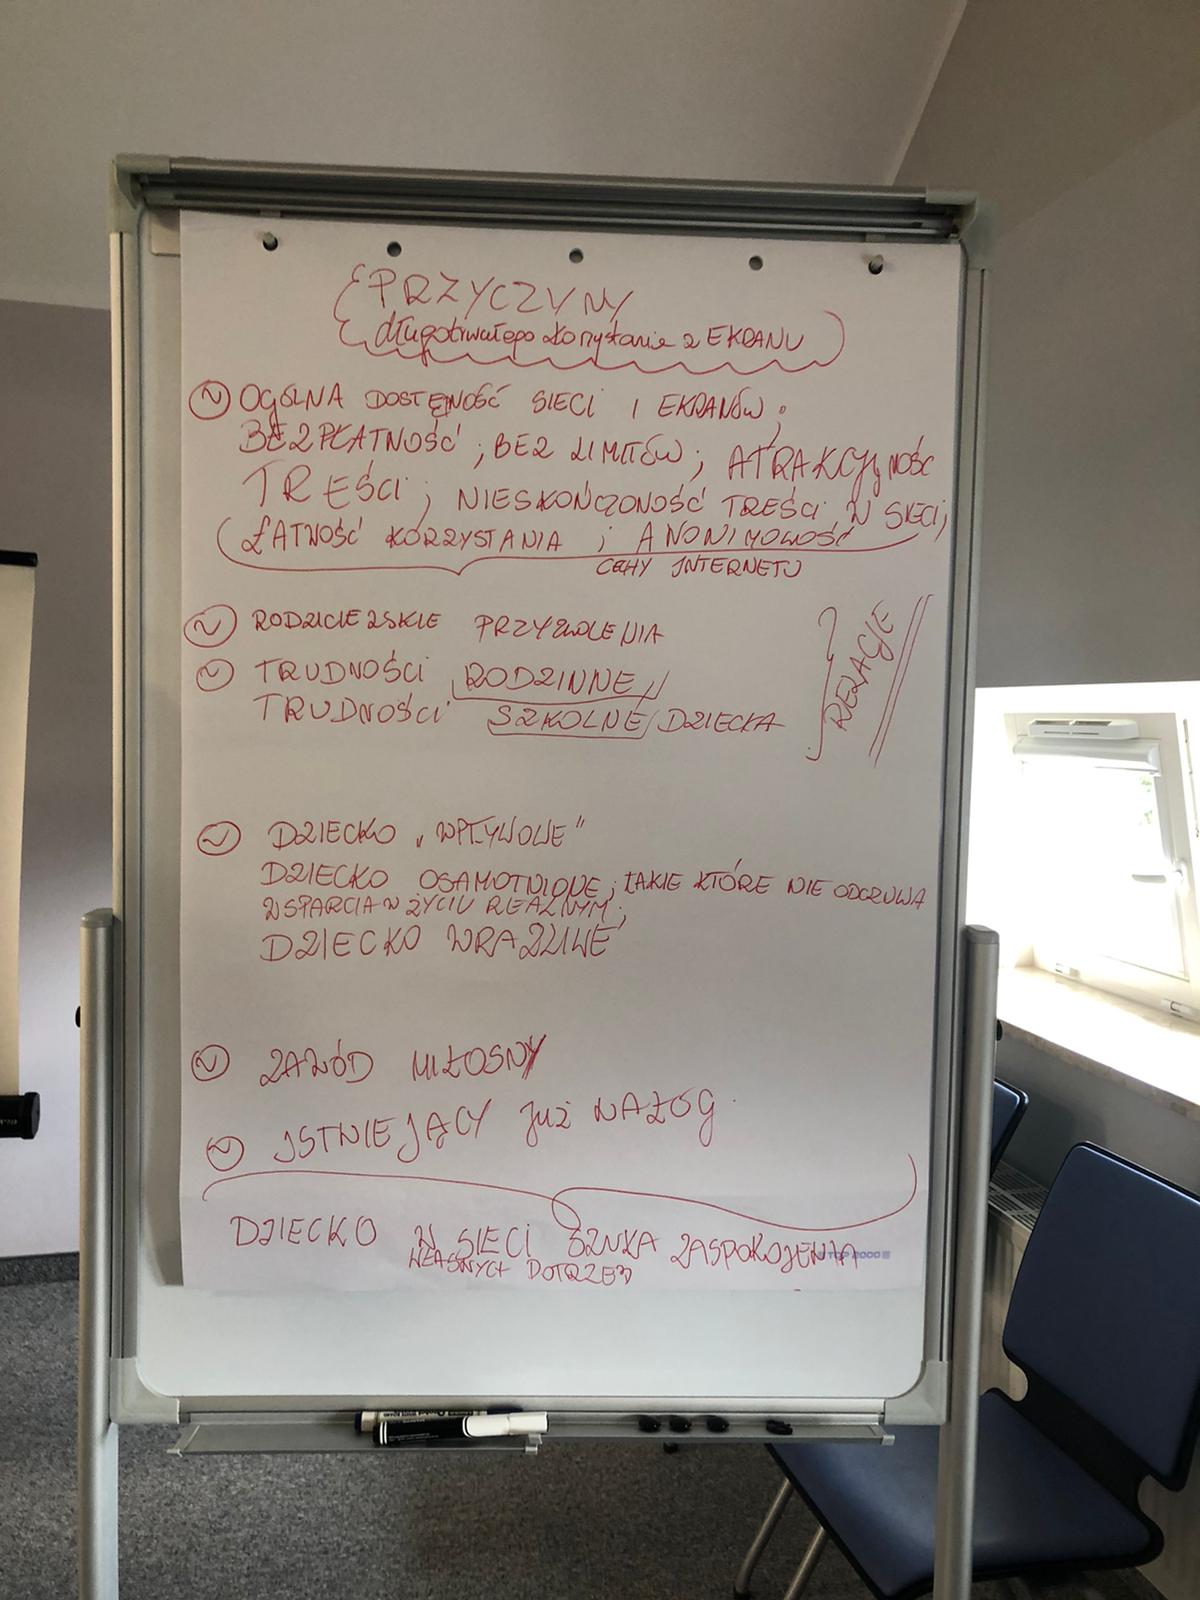 PRZYCZYNY
długotrwałego korzystania z EKRANU
OGÓLNA DOSTĘPNOŚĆ SIECI I EKRANÓW;
BEZPŁATNOŚĆ; BEZ LIMITÓW; ATRAKCYJNOŚĆ
TREŚCI; NIESKOŃCZONOŚĆ TREŚCI W SIECI;
ŁATWOŚĆ KORZYSTANIA; ANONIMOWOŚĆ
CECHY INTERNETU
RODZICIELSKIE PRZYZWOLENIA
TRUDNOŚCI RODZINNE
TRUDNOŚCI SZKOLNE DZIECKA
RELACJE
DZIECKO „WPŁYWOWE”
DZIECKO OSAMOTNIONE; TAKIE KTÓRE NIE ODCZUWA
WSPARCIA W ŻYCIU REALNYM;
DZIECKO WRAŻLIWE
ZAWÓD MIŁOSNY
ISTNIEJĄCY JUŻ NAŁÓG.
DZIECKO W SIECI SZUKA ZASPOKOJENIA
WŁASNYCH POTRZEB
TOP 2000